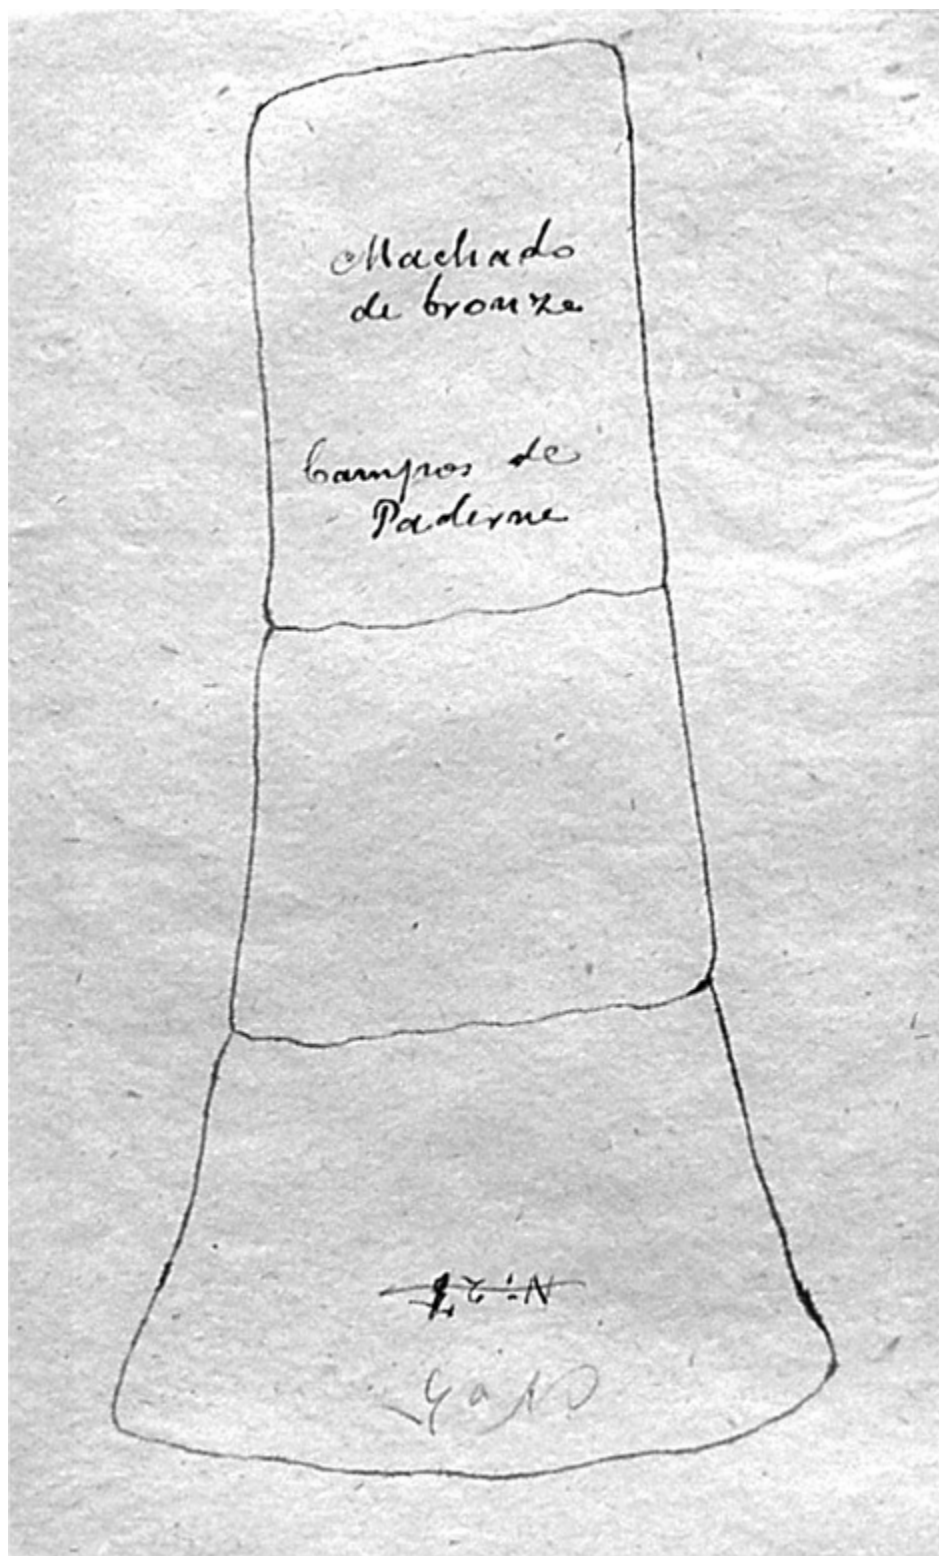 Machado
de bronze
Campos de
Paderne